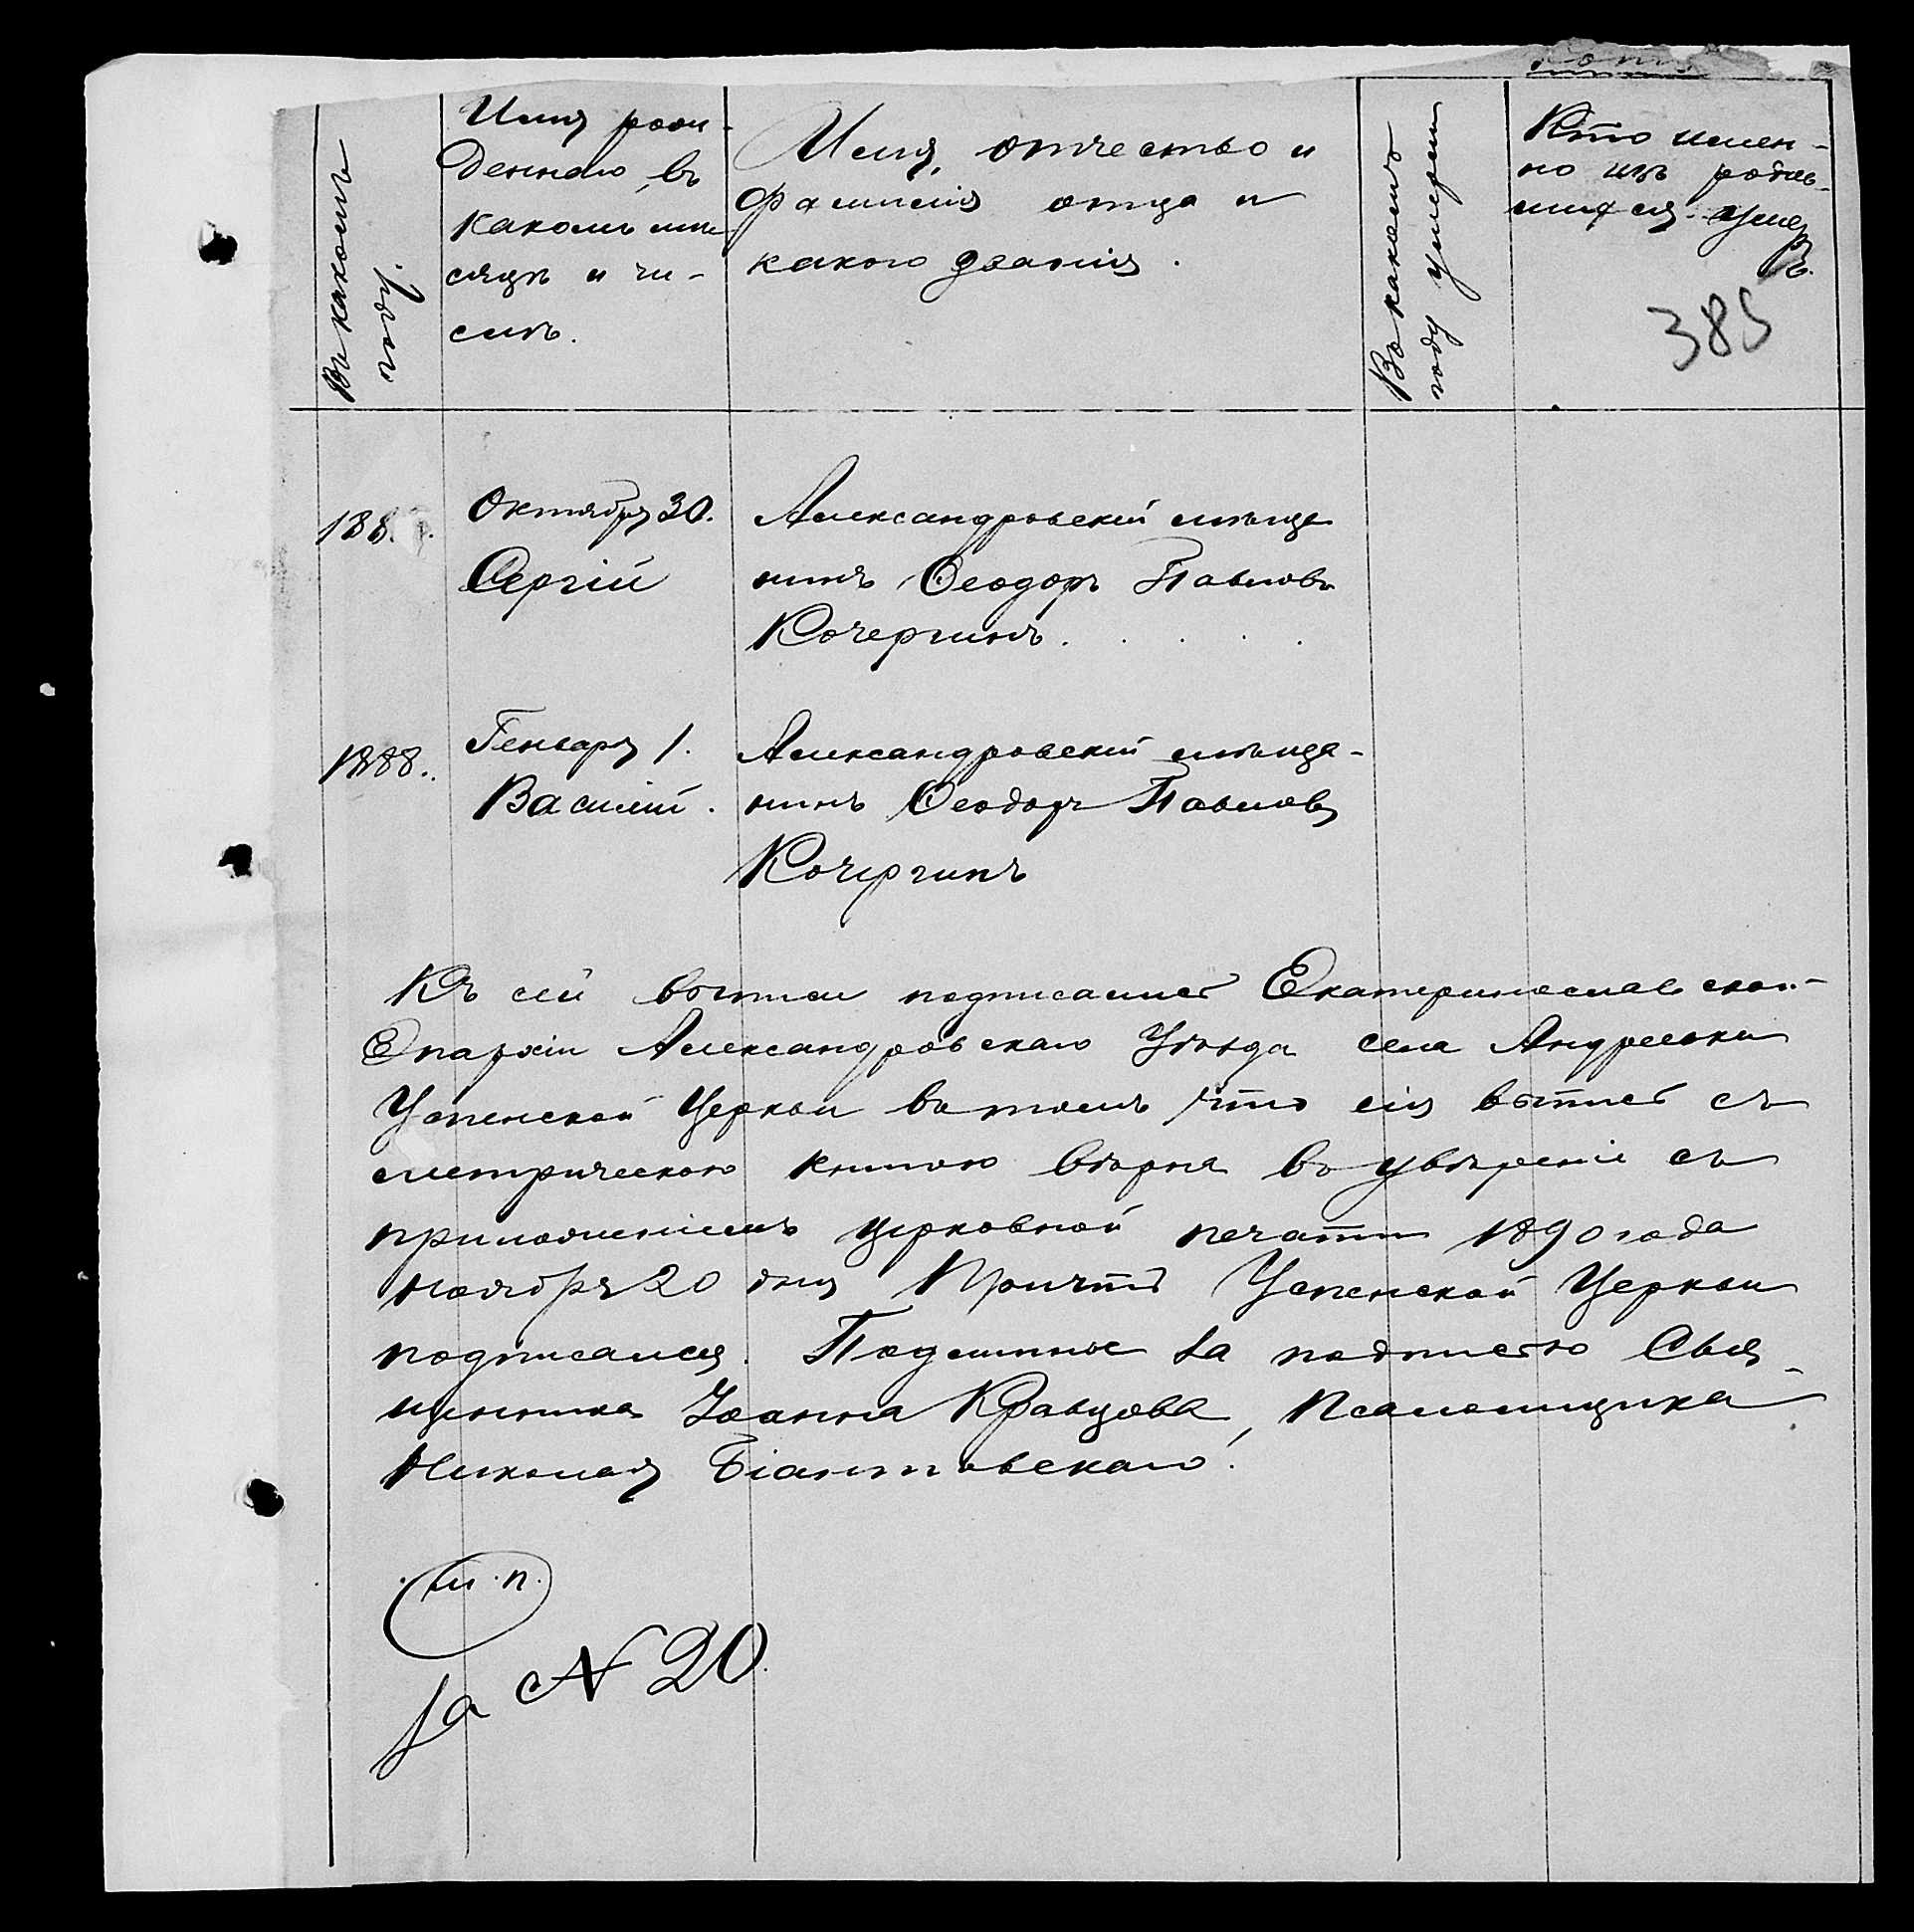 Копія
Въ какомъ
году.
Имя рож-
деннаго, въ
какомъ мѣ-
сяцѣ и чи-
слѣ.
Имя, отчество и
фамилія отца и
какого званія.
Въ какомъ
году умерли
Кто имен-
но изъ родив-
шихся умеръ.
385
188
Октября 30.
Сергій
Александровскій мѣща
нинъ Ѳеодоръ Павловъ
Кочергинъ.
1888.
Генваря 1.
Василій.
Александровскій мѣща-
нинъ Ѳеодоръ Павловъ
Кочергинъ
Къ сей выписи подписался Екатеринославской
Епархіи Александровскаго Уѣзда села Андреевки
Успенской Церкви въ томъ что сія выпись съ
метрическою книгою вѣрна въ увѣреніе съ
приложеніемъ церковной печати 1890 года
Ноября 20 дня Причтъ Успенской Церкви
подписался. Подлинное за подписью Свя-
щенника Іоанна Кравцова, Псаломщика
Николая
м. п.
За № 20.